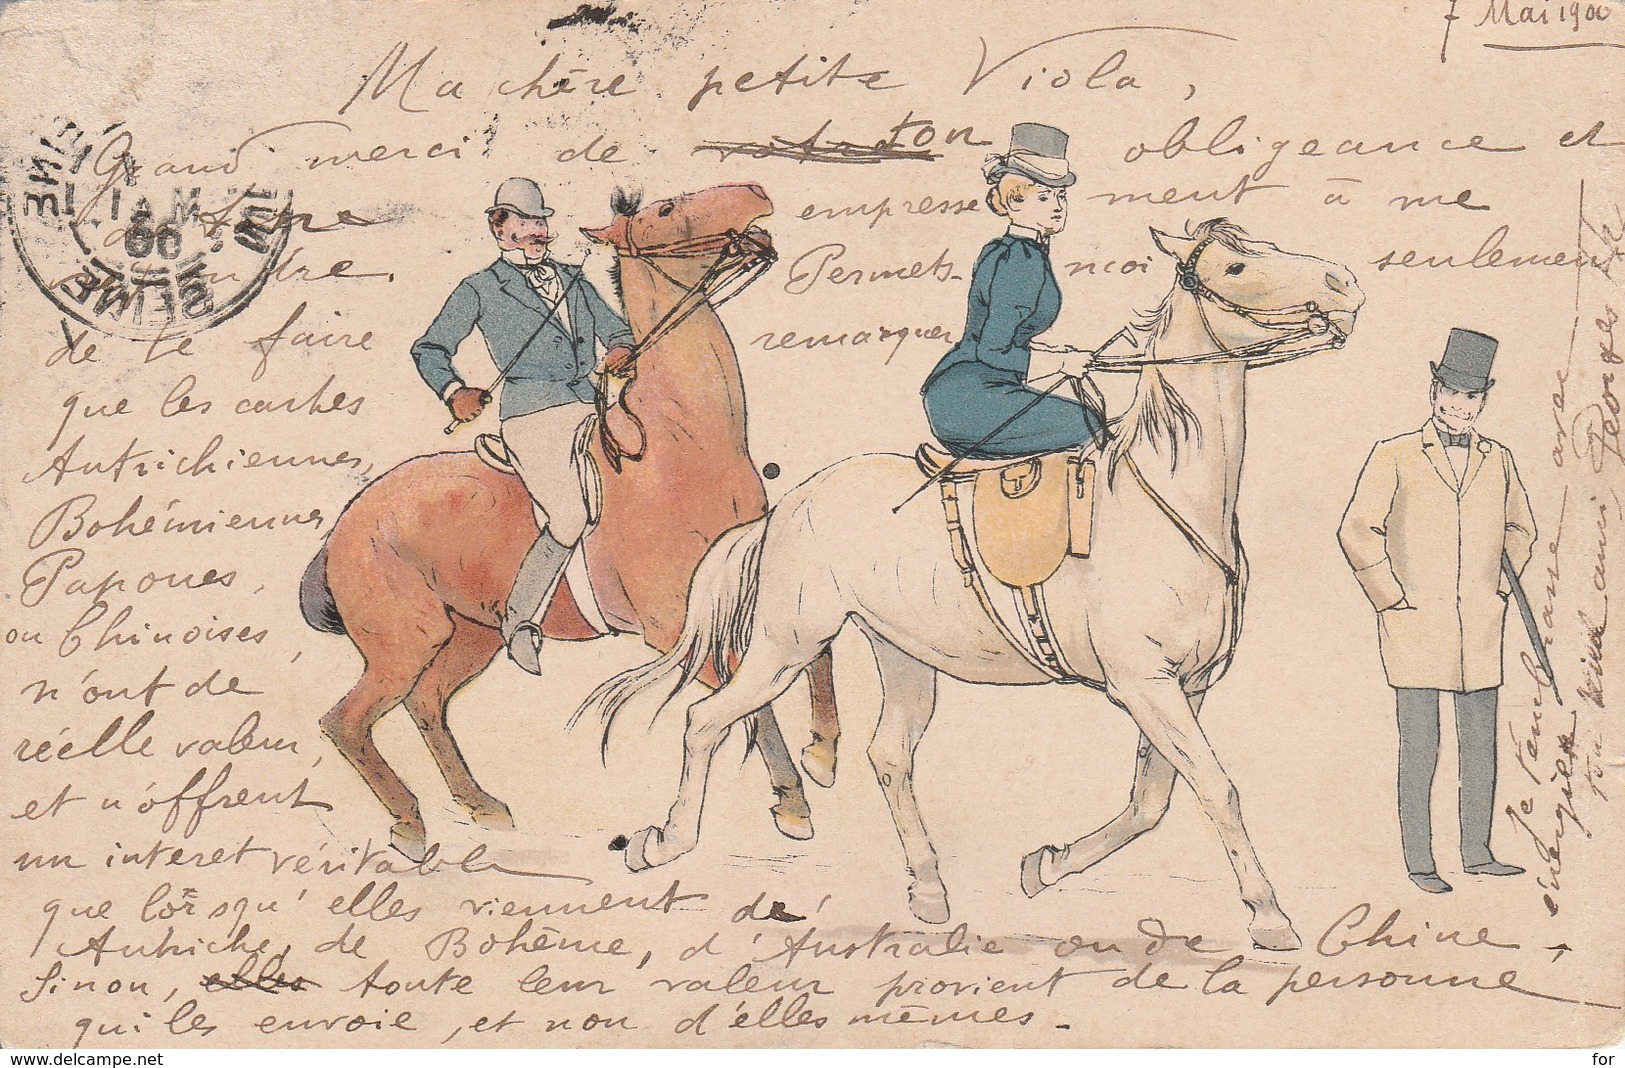 7 Mai 1900
Ma chère petite Viola,
Grand merci de ton obligeance et
de ton empressement à me
répondre. Permets-moi seulement
de te faire remarquer
que les cartes
Autrichiennes,
Bohémiennes
Papoues,
ou Chinoises,
n'ont de
réelle valeur,
et n'offrent
un interet véritable
que lorsqu'elles viennent de
Autriche, de Bohême, d'Australie ou de Chine,
Sinon, elles toute leur valeur provient de la personne
qui les envoie, et non d'elles mêmes.
Je t'embrasse avec
énergie
ton vieil ami Georges
SEINE
1 AM
00
SEINE
www.delcampe.net
for